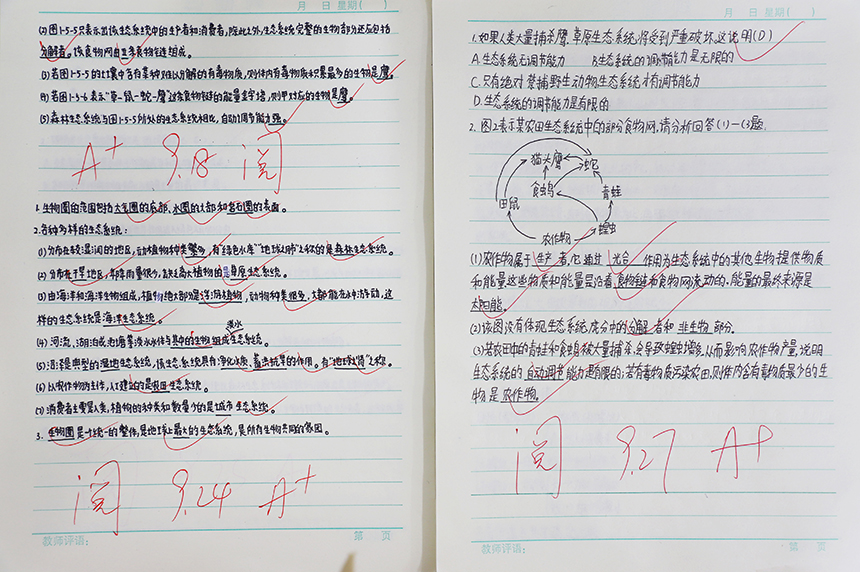 月 日 星期( )
(2)图1-5-5只表示出该生态系统中的生产者和消费者,除此之外,生态系统完整的生物部分还应包括
分解者。该食物网由 条食物链组成。
(3)若图1-5-5的 中含有某种难以分解的有毒物质,则体内有毒物质积累最多的生物是鹰。
(4)若图1-5-6表示"草→鼠→蛇→鹰"这条食物链的能量金字塔,则甲对应的生物是鹰。
(5)森林生态系统与图1-5-5所处的生态系统相比,自动调节能力强。
A+ 9.18 阅
1.生物圈的范围包括大气圈的底部,水圈的大部和岩石圈的表面。
2.各种多样的生态系统:
(1)分布在较湿润的地区,动植物种类繁多,有"绿色水库""地球之肺"之称的是森林生态系统。
(2)分布在干旱地区,年降雨量很少,缺乏高大植物的是草原生态系统。
(3)由海洋和海洋生物组成,植物绝大部分是浮游植物,动物种类很多,大都能在水中游动,这
样的生态系统是海洋生态系统。
淡水
(4)河流、湖泊或池塘等淡水水体与其中的生物组成生态系统。
(5)沼泽是典型的湿地生态系统,该生态系统具有净化水质、蓄洪抗旱的作用。有"地球之肾"之称。
(6)以农作物为主体,人工建立的是农田生态系统。
(7)消费者主要是人类,植物的种类和数量少的是城市生态系统。
3.生物圈是一个统一的整体,是地球上最大的生态系统,是所有生物共同的家园。
阅 9.24 A+
教师评语: 第 页
月 日 星期( )
1.如果人类大量捕杀鹰,草原生态系统将受到严重破坏,这说明(D)
A.生态系统无调节能力 B.生态系统的调节能力是无限的
C.只有绝对禁捕野生动物,生态系统才有调节能力
D.生态系统的调节能力是有限的
2.图2表示某农田生态系统中的部分食物网,请分析回答(1)—(3)题.
猫头鹰 蛇
田鼠 食虫鸟 青蛙
农作物 蝗虫
(1)农作物属于生产者,它通过光合作用为生态系统中的其他生物提供物质
和能量这些物质和能量是沿着食物链和食物网流动的.能量的最终来源是
太阳能。
(2)该图没有体现生态系统成分中的分解者和非生物部分.
(3)若农田中的青蛙和食虫鸟被大量捕杀,会导致蝗虫增多,从而影响农作物产量,说明
生态系统的自动调节能力是有限的;若有毒物质污染农田,则体内含有毒物质最少的生
物是农作物。
阅 9.27 A+
教师评语: 第 页